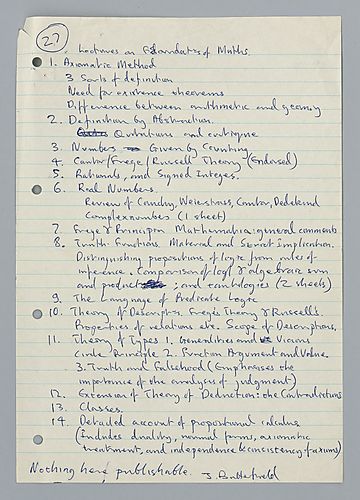 27
Lectures on Foundations of Maths.
1. Axiomatic Method
3 Sorts of definition
Need for existence theorems
Difference between arithmetic and geometry
2. Definition by Abstraction.
Quotations and critique
3. Numbers Given by Counting
4. Cantor/Frege/Russell Theory (Endorsed)
5. Rationals, and Signed Integers.
6. Real Numbers.
Review of Cauchy, Weierstrass, Cantor, Dedekind
Complex numbers (1 sheet)
7. Frege & Principia Mathematica: general comments
8. Truth-Functions. Material and Strict Implication.
Distinguishing propositions of logic from rules of
inference. Comparison of log'l & algebraic sum
and product; and tautologies (2 sheets)
9. The Language of Predicate Logic
10. Theory of Descriptns. Frege's Theory & Russell's.
Properties of relations etc. Scope of Descriptions.
11. Theory of Types 1. Generalities and Vicious
Circle Principle 2. Function Argument and Value.
3. Truth and Falsehood (Emphasises the
importance of the analysis of judgment)
12. Extension of Theory of Deduction: the Contradictions
13. Classes.
14. Detailed account of propositional calculus
(Includes duality, normal forms, axiomatic
treatment, and independence & consistency of axioms)
Nothing here publishable. J Butterfield